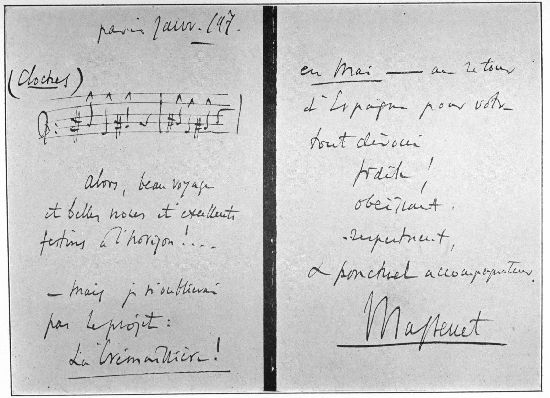 paris Janv. /97.
(Cloches)
alors, beau voyage
et belles noces et excellents
festins à l'horizon!....
— mais je n'oublierai
pas le projet:
La Crémaillère!
en Mai — au retour
d'Espagne pour votre
tout dévoué
fidèle!
obéissant.
respectueux,
& ponctuel accompagnateur.
Massenet